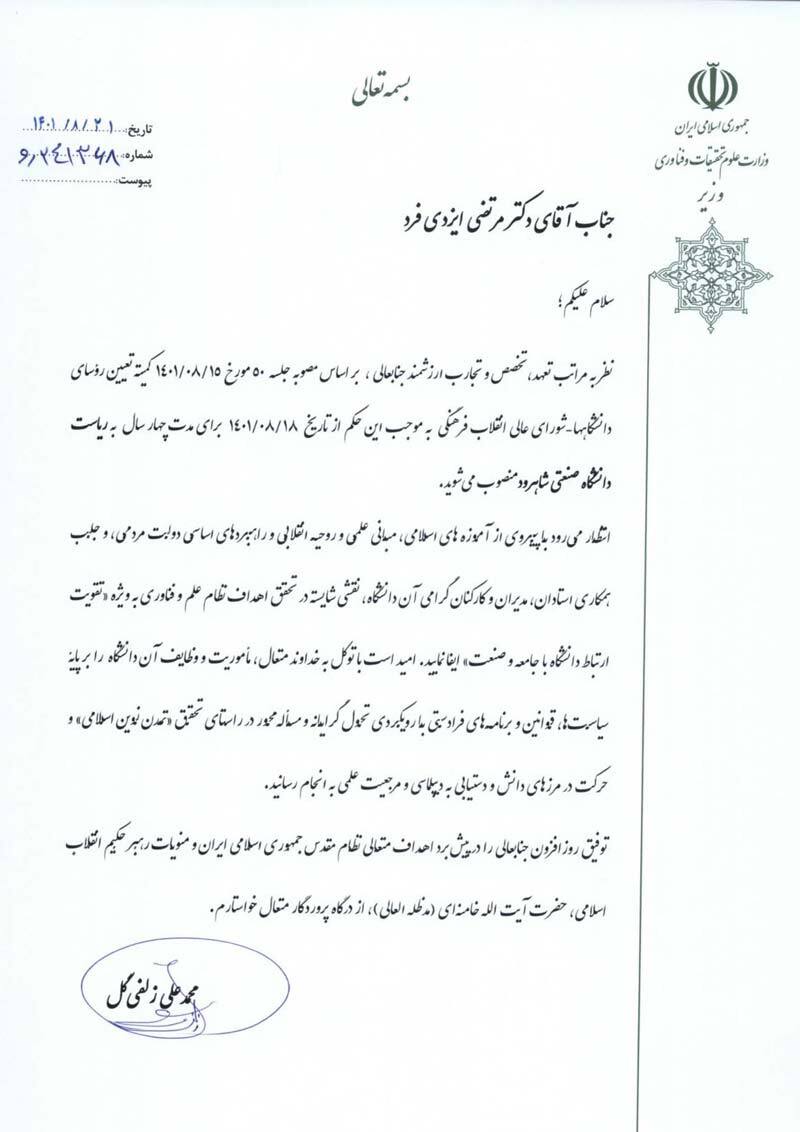 بسمه تعالی
جمهوری اسلامی ایران
وزارت علوم تحقیقات و فناوری
وزیر
تاریخ: ۱۴۰۱/۸/۲۱
شماره:
پیوست:
جناب آقای دکتر مرتضی ایزدی فرد
سلام علیکم؛
نظر به مراتب تعهد، تخصص و تجارب ارزشمند جنابعالی، بر اساس مصوبه جلسه ۵۰ مورخ ۱۴۰۱/۰۸/۱۵ کمیته تعیین رؤسای
دانشگاهها-شورای عالی انقلاب فرهنگی به موجب این حکم از تاریخ ۱۴۰۱/۰۸/۱۸ برای مدت چهار سال به ریاست
دانشگاه صنعتی شاهرود منصوب می‌شوید.
انتظار می‌رود با پیروی از آموزه های اسلامی، مبانی علمی و روحیه انقلابی و راهبردهای اساسی دولت مردمی، و جلب
همکاری استادان، مدیران و کارکنان گرامی آن دانشگاه، نقشی شایسته در تحقق اهداف نظام علم و فناوری به ویژه «تقویت
ارتباط دانشگاه با جامعه و صنعت» ایفا نمایید. امید است با توکل به خداوند متعال، مأموریت و وظایف آن دانشگاه را بر پایهٔ
سیاست‌ها، قوانین و برنامه‌های فرادستی با رویکردی تحول گرایانه و مسأله محور در راستای تحقق «تمدن نوین اسلامی» و
حرکت در مرزهای دانش و دستیابی به دیپلماسی و مرجعیت علمی به انجام رسانید.
توفیق روز افزون جنابعالی را در پیش برد اهداف متعالی نظام مقدس جمهوری اسلامی ایران و منویات رهبر حکیم انقلاب
اسلامی، حضرت آیت الله خامنه‌ای (مدظله العالی)، از درگاه پروردگار متعال خواستارم.
محمد علی زلفی گل